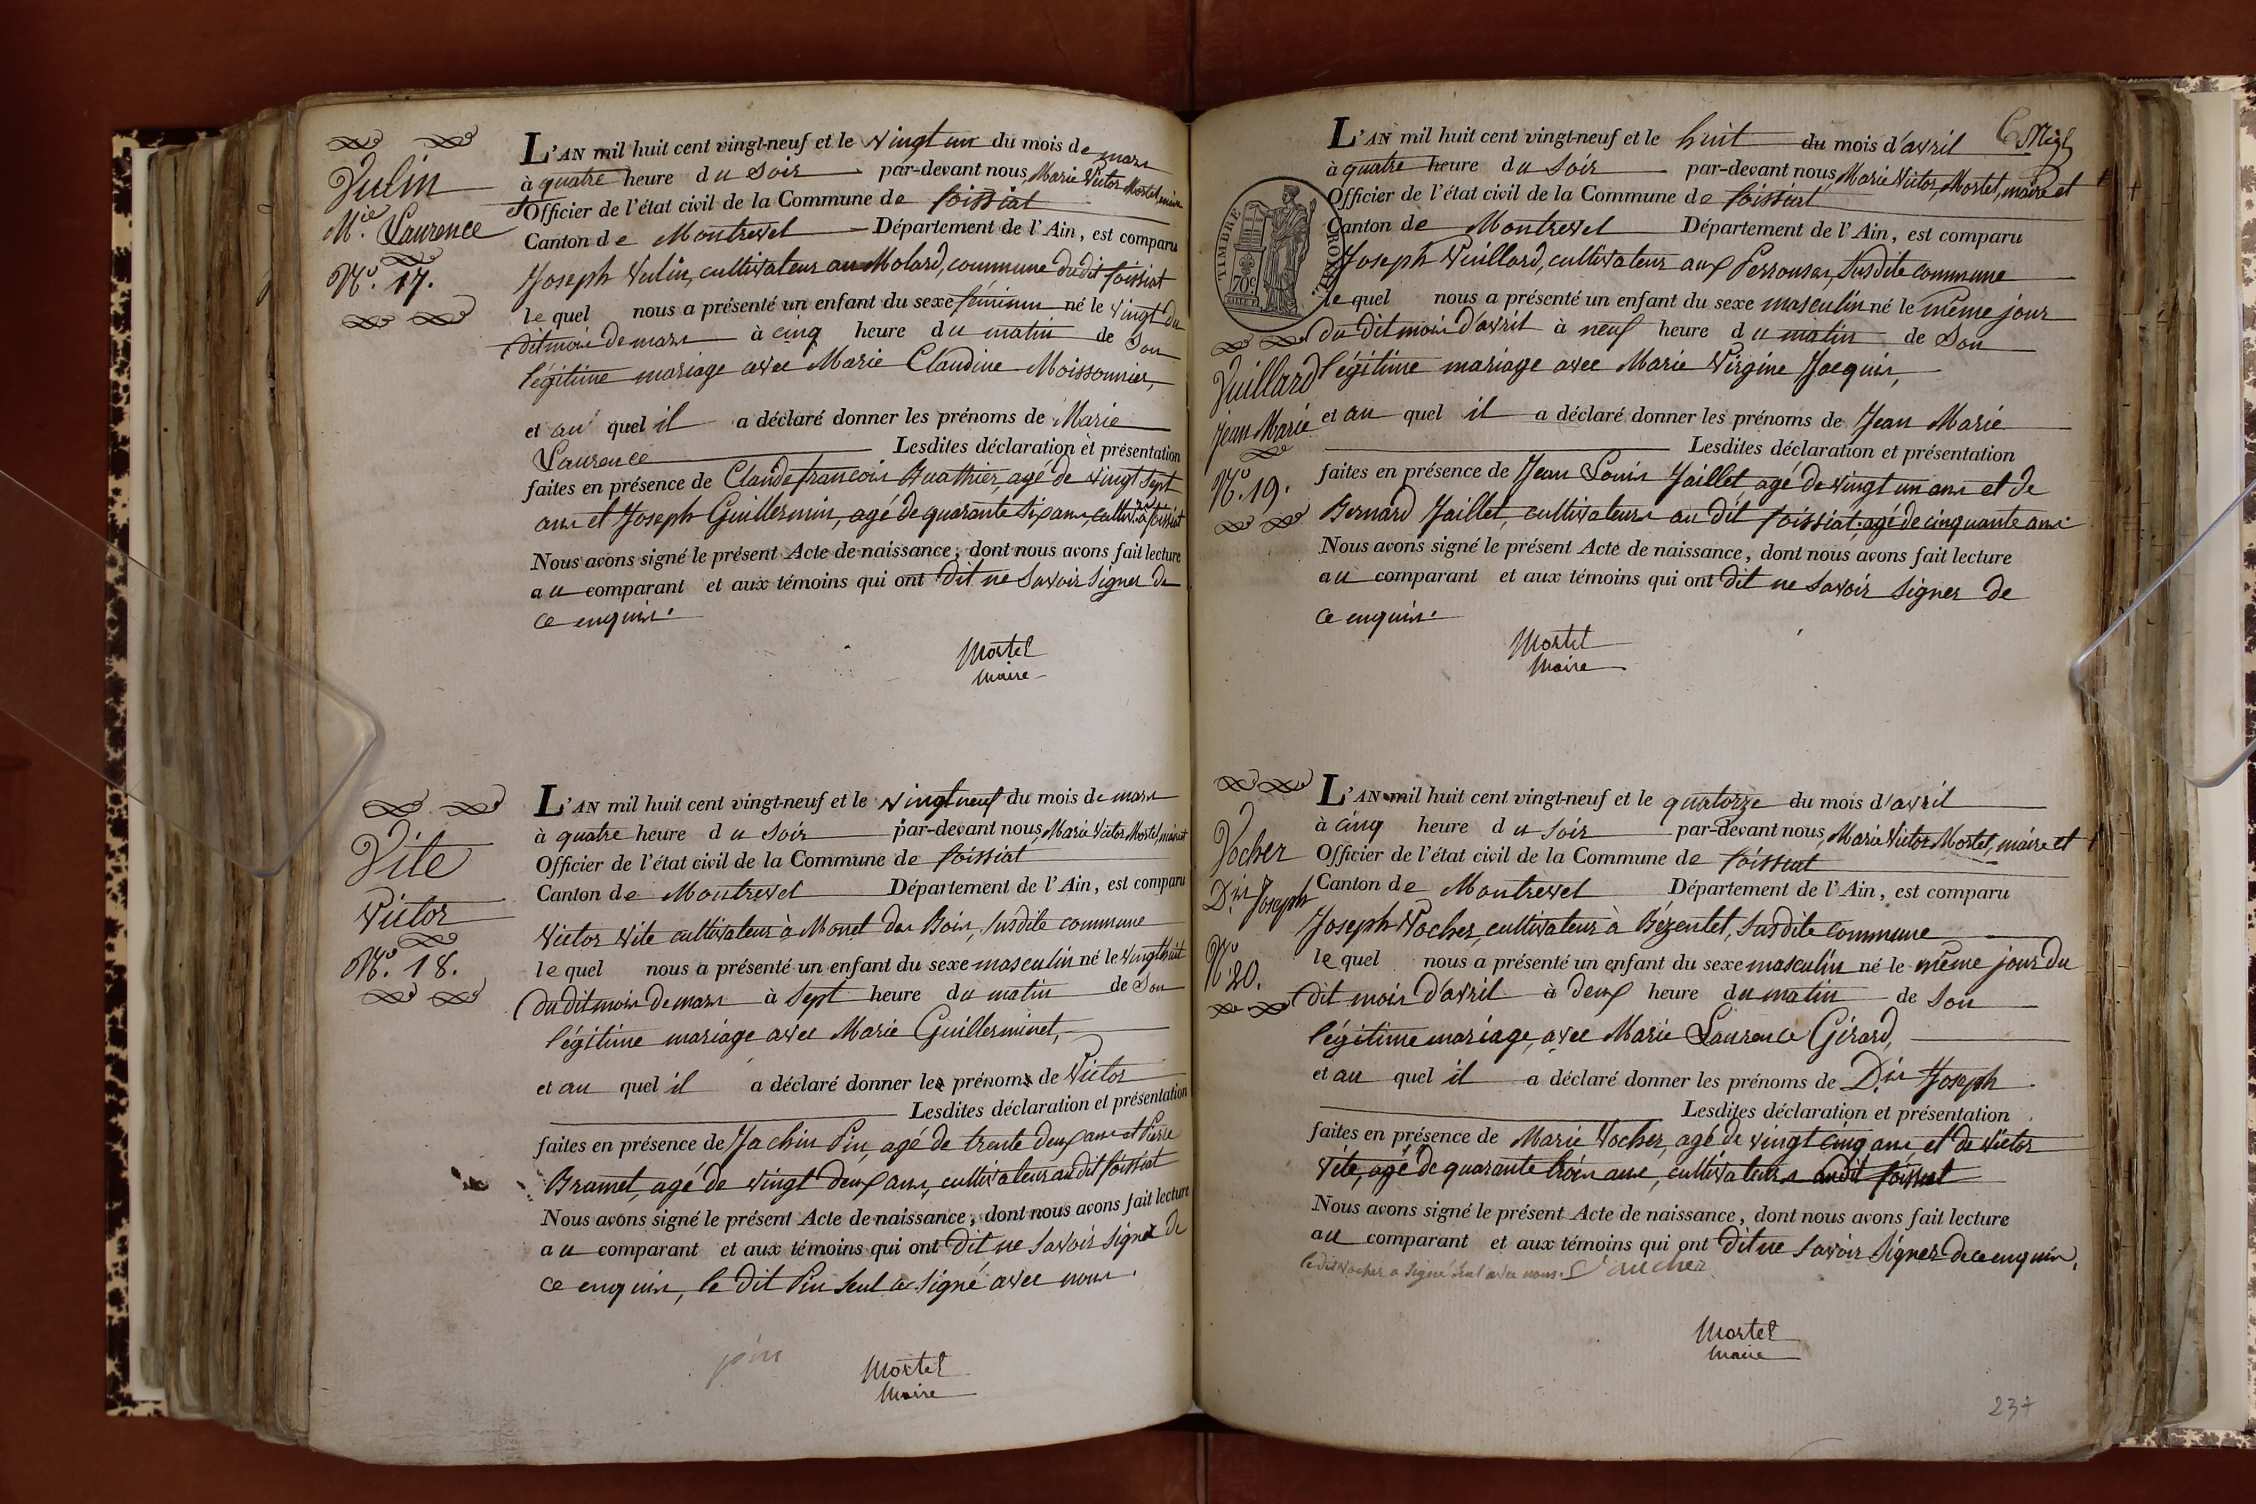 Vulin
Mie. Laurence
No. 17.
L'AN mil huit cent vingt-neuf et le vingt un du mois de mars
à quatre heure du soir par-devant nous, Marie Victor Mortel, maire
et Officier de l'état civil de la Commune de foissiat
Canton de Montrevel Département de l'Ain, est comparu
Joseph Vulin, cultivateur au Molard, commune du dit foissiat
le quel nous a présenté un enfant du sexe féminin né le vingt du
dit mois de mars à cinq heure du matin de son
légitime mariage avec Marie Claudine Moissonnier,
et au quel il a déclaré donner les prénoms de Marie
Laurence Lesdites déclaration et présentation
faites en présence de Claude francois Buathier, agé de vingt sept
ans et Joseph Guillermin, agé de quarante six ans, cultivrs à foissiat
Nous avons signé le présent Acte de naissance, dont nous avons fait lecture
au comparant et aux témoins qui ont dit ne savoir signer de
ce enquis.
Mortel
Maire
Vite
Victor
No. 18.
L'AN mil huit cent vingt-neuf et le vingt neuf du mois de mars
à quatre heure du soir par-devant nous, Marie Victor Mortel, maire et
Officier de l'état civil de la Commune de foissiat
Canton de Montrevel Département de l'Ain, est comparu
Victor Vite cultivateur à Monet des Bois, susdite commune
le quel nous a présenté un enfant du sexe masculin né le vingt huit
du dit mois de mars à sept heure du matin de son
légitime mariage avec Marie Guilleminet,
et au quel il a déclaré donner les prénoms de Victor
Lesdites déclaration et présentation
faites en présence de Jachin Pin, agé de trente deux ans et Pierre
Bramet, agé de vingt deux ans, cultivateurs au dit foissiat
Nous avons signé le présent Acte de naissance, dont nous avons fait lecture
au comparant et aux témoins qui ont dit ne savoir signer de
ce enquis, le dit Pin seul a signé avec nous.
pin
Mortel
Maire
TIMBRE ROYAL
70c
Vuillard
Jean Marie
No. 19.
L'AN mil huit cent vingt-neuf et le huit du mois d'avril
à quatre heure du soir par-devant nous, Marie Victor Mortel, maire et
Officier de l'état civil de la Commune de foissiat
Canton de Montrevel Département de l'Ain, est comparu
Joseph Vuillard, cultivateur aux Perrouses, susdite commune
le quel nous a présenté un enfant du sexe masculin né le même jour
du dit mois d'avril à neuf heure du matin de son
légitime mariage avec Marie Virgine Jacquis,
et au quel il a déclaré donner les prénoms de Jean Marie
Lesdites déclaration et présentation
faites en présence de Jean Louis Jaillet, agé de vingt un ans et de
Bernard Jaillet, cultivateurs au dit foissiat, agé de cinquante ans
Nous avons signé le présent Acte de naissance, dont nous avons fait lecture
au comparant et aux témoins qui ont dit ne savoir signer de
ce enquis.
Mortel
Maire
Vocher
Din Joseph
No 20.
L'AN mil huit cent vingt-neuf et le quatorze du mois d'avril
à cinq heure du soir par-devant nous, Marie Victor Mortel, maire et
Officier de l'état civil de la Commune de foissiat
Canton de Montrevel Département de l'Ain, est comparu
Joseph Vocher, cultivateur à Bézentet, susdite commune
le quel nous a présenté un enfant du sexe masculin né le même jour du
dit mois d'avril à deux heure du matin de son
légitime mariage, avec Marie Laurence Girard,
et au quel il a déclaré donner les prénoms de Din Joseph
Lesdites déclaration et présentation
faites en présence de Marie Vocher, agé de vingt cinq ans, et de Victor
Vite, agé de quarante trois ans, cultivateurs au dit foissiat
Nous avons signé le présent Acte de naissance, dont nous avons fait lecture
au comparant et aux témoins qui ont dit ne savoir signer de ce enquis,
le dit Vocher a signé seul avec nous. Vaucher
Mortel
Maire
237